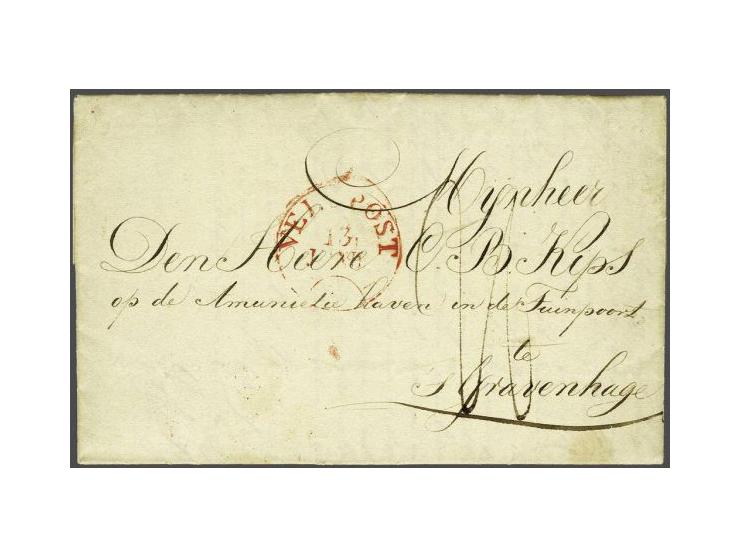 Mijnheer
VELDPOST
13
Den Heere C. B. Kips
op de Amunietie Haven in de Tuinpoort
te
s Gravenhage